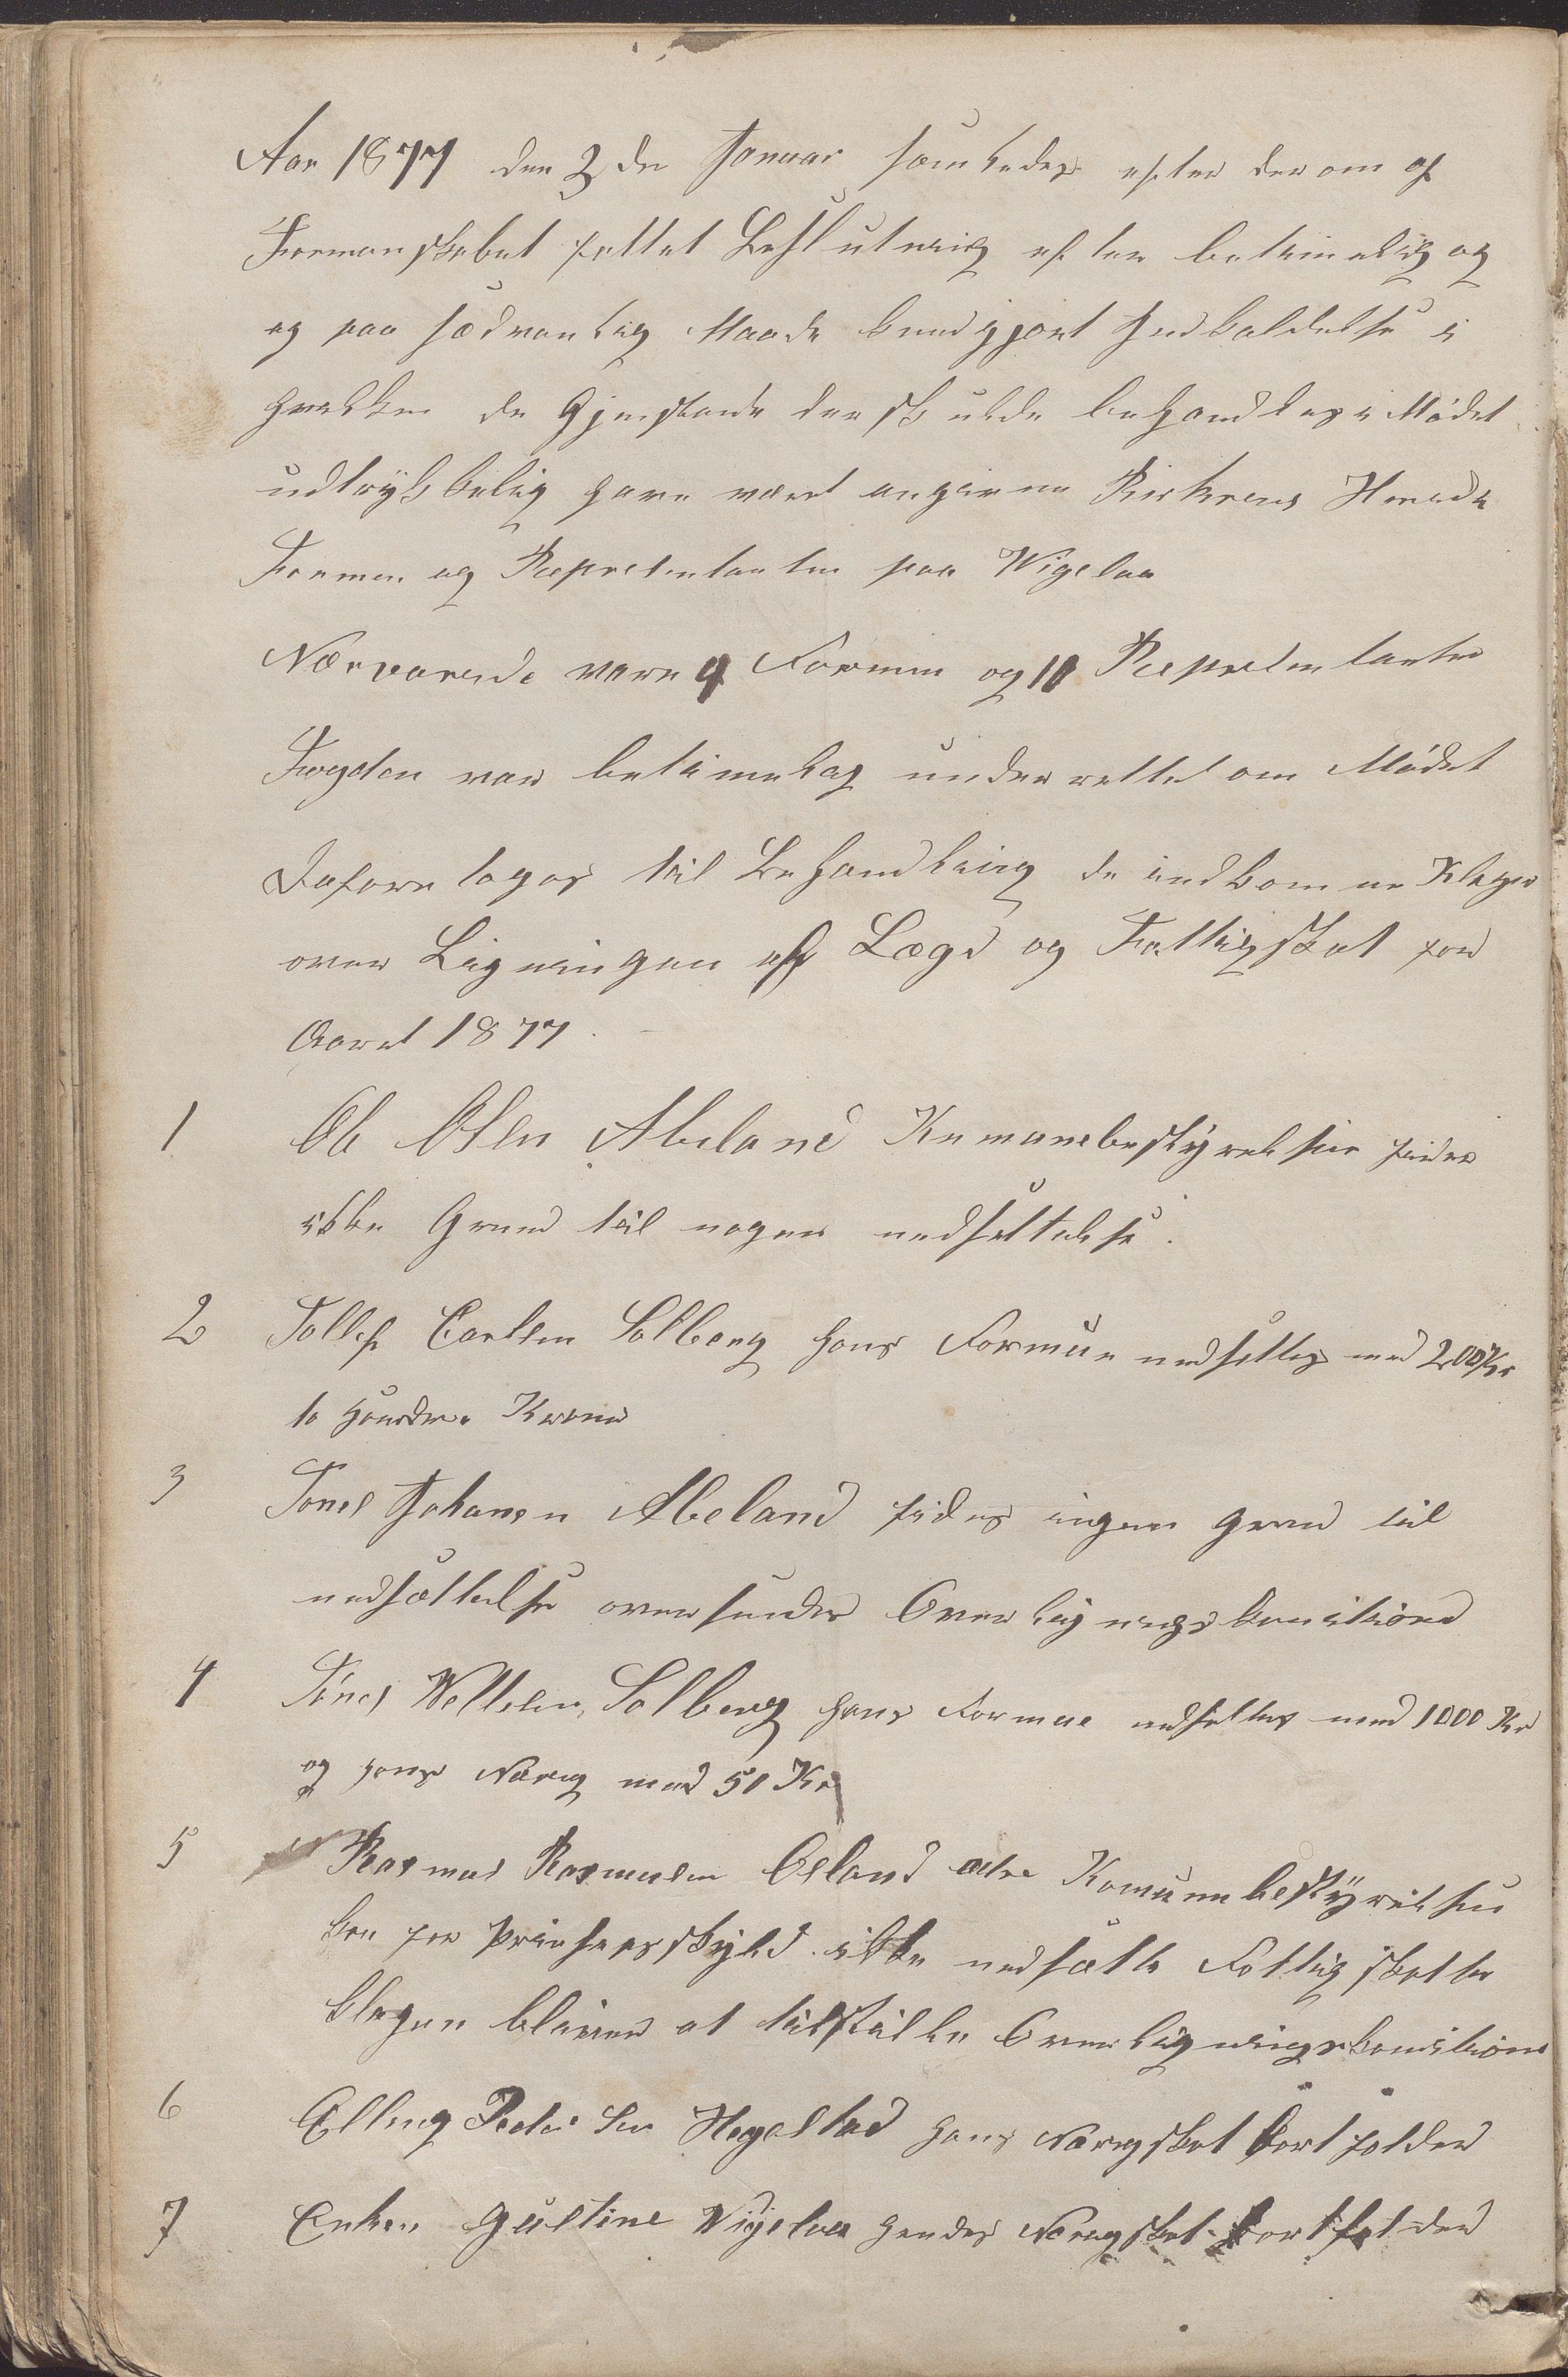 Aar 1877 den 2den Januar samledes efter derom af
Formanskabet fattet Beslutning efter betimelig og
og paa sædvanlig Maade kundgjort Indkaldelse i
hvilken de Gjenstande der skulde behandles i Mødet
udtrykkelig have været angivne Herreds
Formen og Repræsentanter paa Vigelaa
Nærværende vare 9 Formen og 10 Repræsentanter
Fogden var betimelig underrettet om Mødet
Da foretoges til Behandling de indkomne Klager
over Ligningen af Lægd og Fattigskat for
Aaret 1877.
1 Ole Olsen Abeland Kumunebestyrelsen finder
ikke Grund til nogen nedsettelse.
2 Tollef Carlsen Solberg hans Formue nedsettes med 200 Kr
to Hundre Kroner
3 Tonnes Johansen Abeland findes ingen Grund til
nedsættelse oversendes Overligningskomisionen
4 Tønes Solberg hans Formue nedsettes med 1000 Kr
og hans Næring med 50 Kr
5 Rasmus Rasmusen Øeland ældre Komunebestyrelsen
kan for prinsepsskyld ikke nedsætte Fattigskatten
klagen bliver at tilstille Overligningskomisionen
6 Elling Pedersen Hegelstad hans Næringskat bortfalder
7 Enken Gustine Vigelaa hendes Næringskat bortfalder